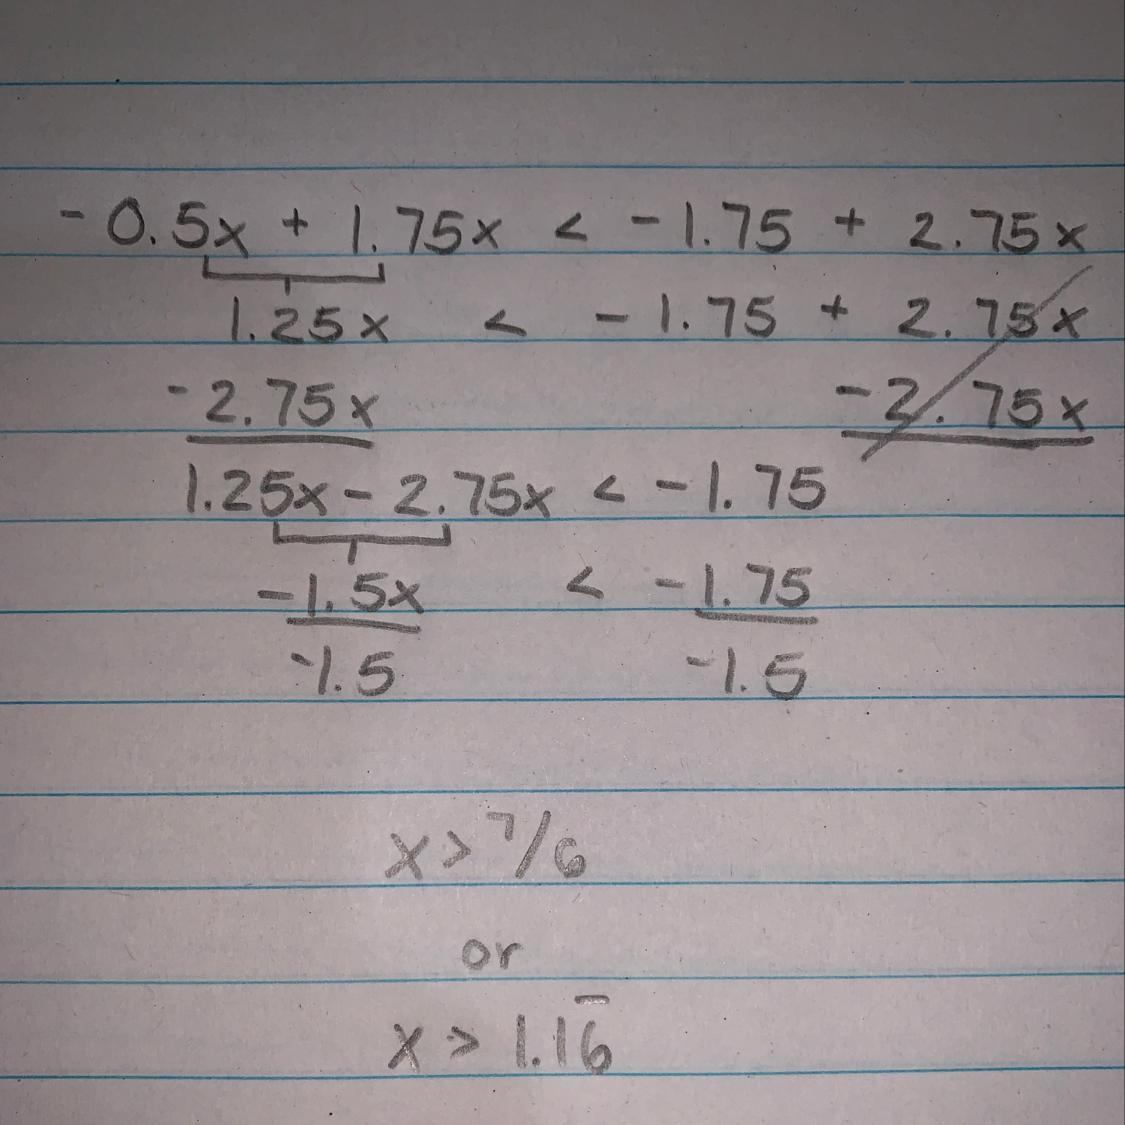 -0.5x + 1.75x < -1.75 + 2.75x
1.25x < -1.75 + 2.75x
-2.75x -2.75x
1.25x - 2.75x < -1.75
-1.5x < -1.75
-1.5 -1.5
x > 7/6
or
x > 1.16̅